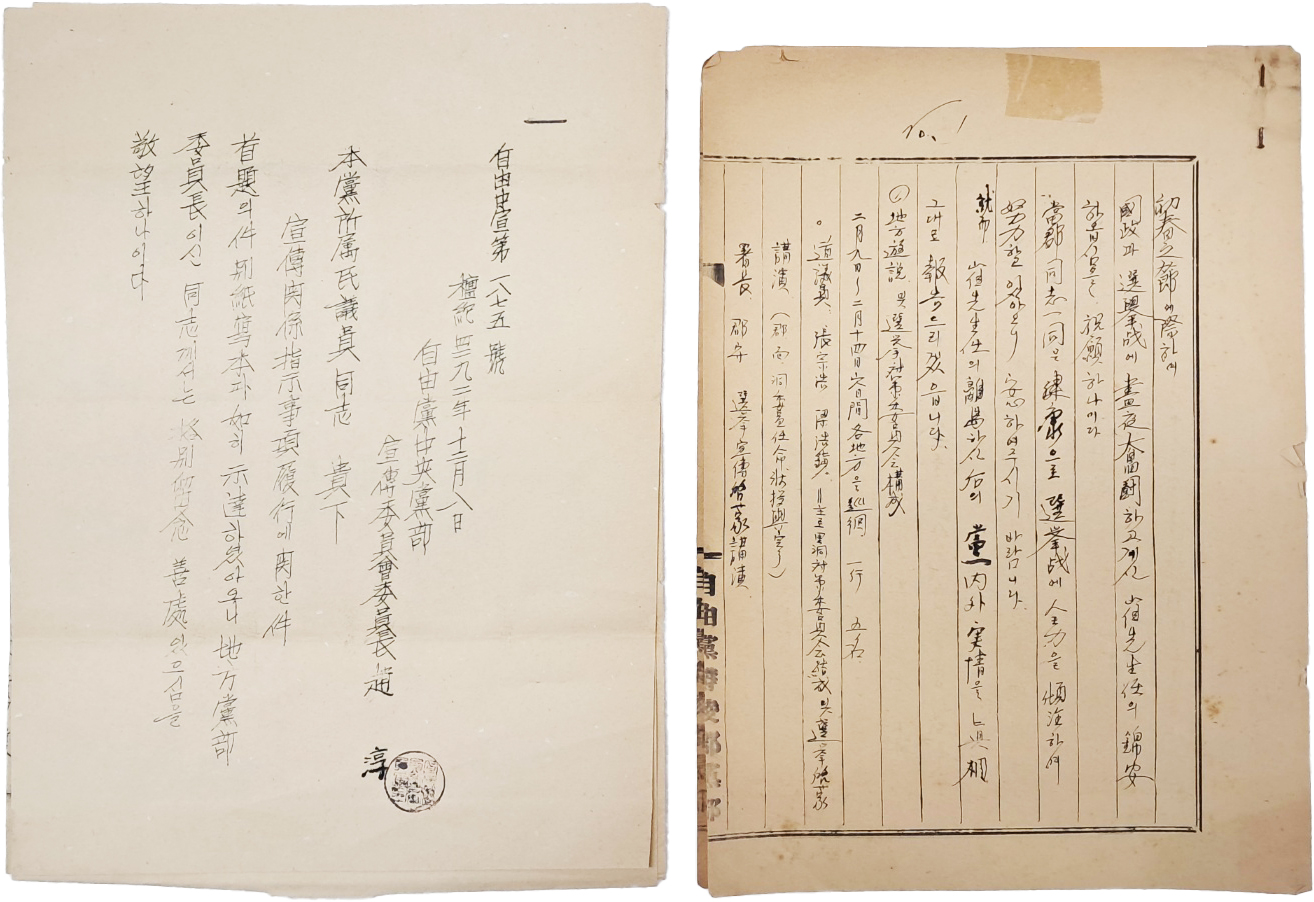 自由中宣第一八七五號
檀紀四二九二年十二月八日
自由黨中央黨部
宣傳委員會委員長 趙 淳
本黨所属民議員同志 貴下
宣傳関係指示事項履行에 関한 件
首題의 件 別紙寫本과 如히 示達하였아오니 地方黨部
委員長이신 同志께서는 恪別留念 善處있으심을
敬望하나이다
No. 1
初春之節에 際하여
國政과 選擧战에 晝夜奮鬪하고 계신 崔先生任의 錦安
하심을 祝願하나이다
當郡 同志一同은 健康으로 選挙战에 全力을 傾注하여
努力할 있아오니 安心하여주시기 바랍니다.
就而 崔先生任의 離島하신 后의 黨内外 実情을 眞相
그대로 報告드리겠습니다.
(1) 地方遊説 및 選挙対策委員会構成
二月九日~二月十四日六日間各地方을 巡網 一行 五名
道議員 張宗浩 梁 =主로 里洞対策委員会結成 및 選挙啓蒙
講演 (郡面洞委任命狀授與完了)
署長. 郡守 選挙宣傳啓蒙講演
自由黨 郡黨部